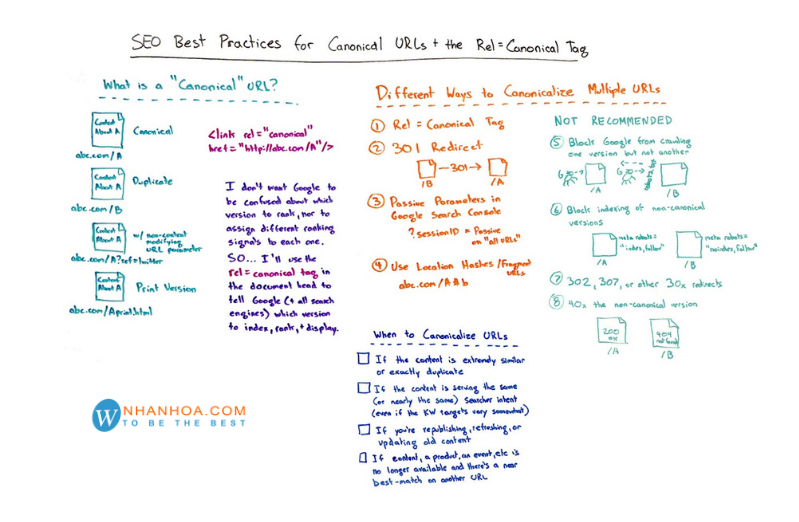 SEO Best Practices for Canonical URLs + the Rel=Canonical Tag
What is a "Canonical" URL?
Content
About A
Canonical
abc.com/A
Content
About A
Duplicate
abc.com/B
Content
About A
w/ non-content
modifying
URL parameter
abc.com/A?ref=twitter
Content
About A
Print Version
abc.com/Aprint.html
<link rel="canonical"
href="http://abc.com/A"/>
I don't want Google to
be confused about which
version to rank, nor to
assign different ranking
signals to each one.
SO... I'll use the
rel=canonical tag in
the document head to
tell Google (+ all search
engines) which version
to index, rank, + display.
Different Ways to Canonicalize Multiple URLs
1 Rel = Canonical Tag
2 301 Redirect
301
/B
/A
3 Passive Parameters in
Google Search Console
?sessionID = Passive
on "all URLs"
4 Use Location Hashes/Fragment
URLs
abc.com/A#b
NOT RECOMMENDED
5 Block Google from crawling
one version but not another
/A
/B
6 Block indexing of non-canonical
versions
meta robots=
"index, follow"
/A
meta robots=
"noindex, follow"
/B
7 302, 307, or other 30x redirects
8 40x the non-canonical version
200
/A
404
not found
/B
When to Canonicalize URLs
If the content is extremely similar
or exactly duplicate
If the content is serving the same
(or nearly the same) searcher intent
(even if the KW targets vary somewhat)
If you're republishing, refreshing, or
updating old content
If content, a product, an event, etc is
no longer available and there's a near
best-match on another URL
W
NHANHOA.COM
TO BE THE BEST